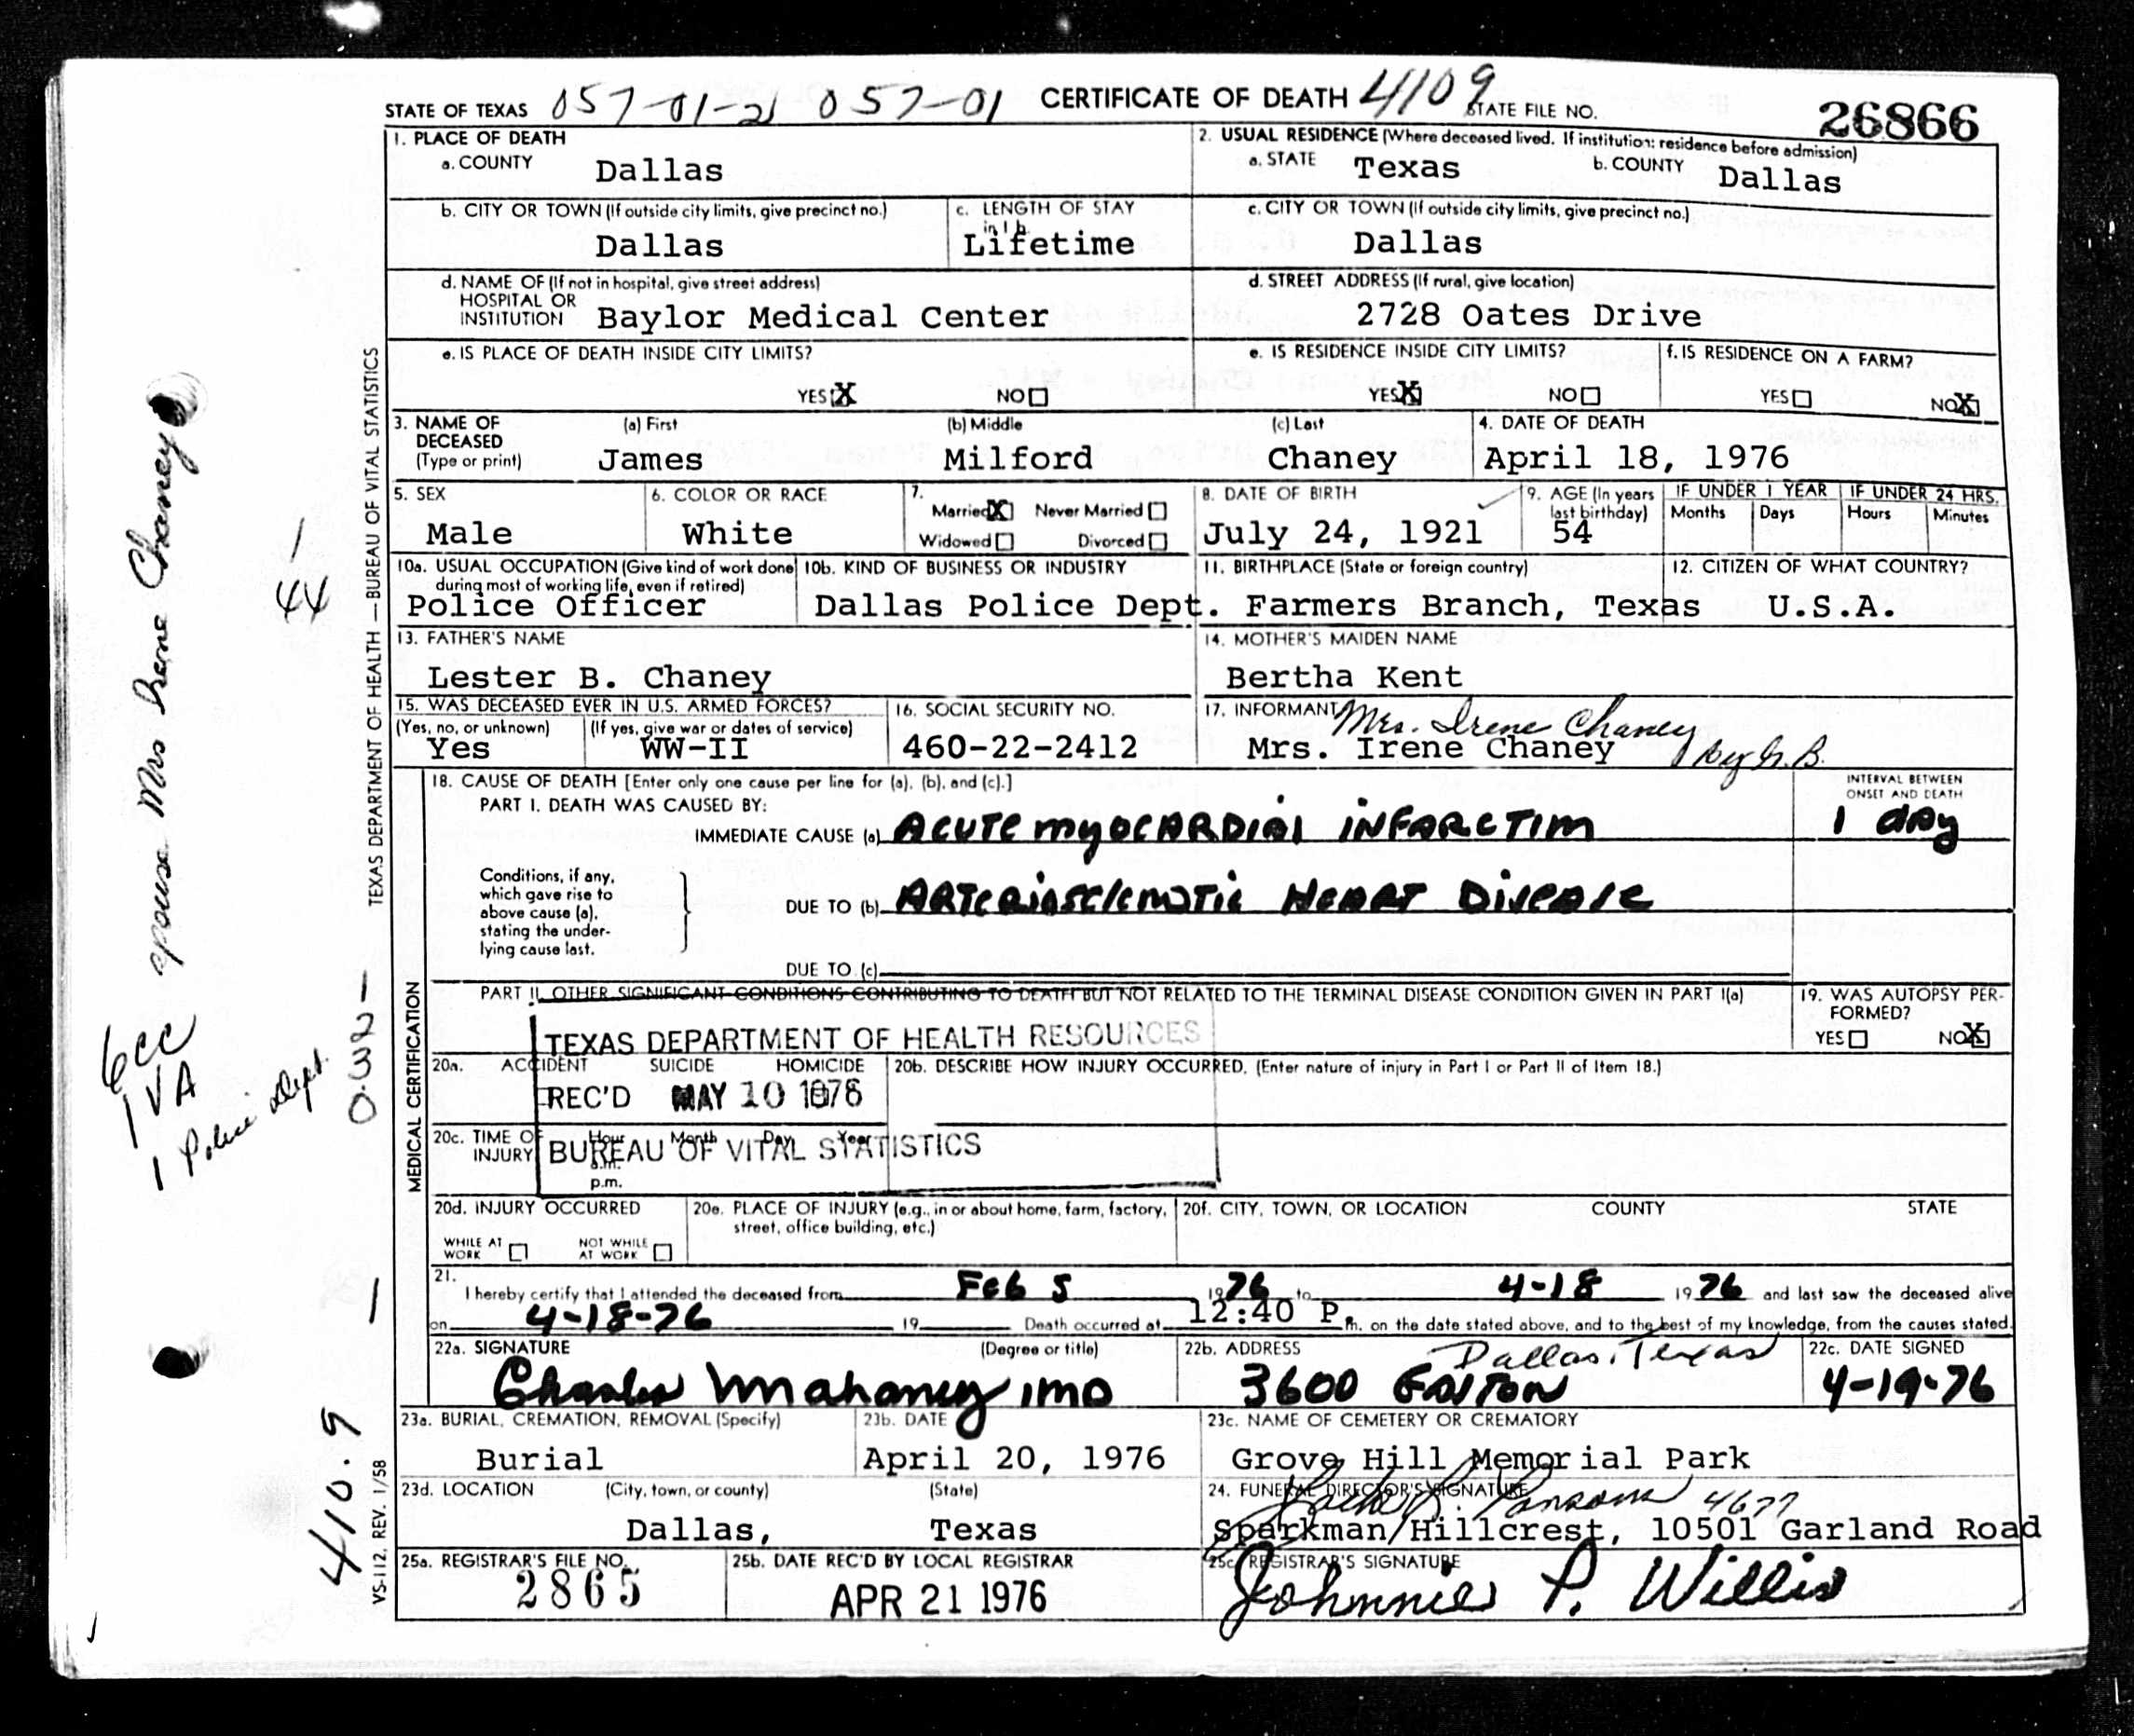 STATE OF TEXAS 057-01-21 057-01 CERTIFICATE OF DEATH 4109 STATE FILE NO. 26866
1. PLACE OF DEATH
a. COUNTY Dallas
2. USUAL RESIDENCE (Where deceased lived. If institution: residence before admission)
a. STATE Texas b. COUNTY Dallas
b. CITY OR TOWN (If outside city limits, give precinct no.) Dallas
c. LENGTH OF STAY in 1 b. Lifetime
c. CITY OR TOWN (If outside city limits, give precinct no.) Dallas
d. NAME OF (If not in hospital, give street address)
HOSPITAL OR
INSTITUTION Baylor Medical Center
d. STREET ADDRESS (If rural, give location)
2728 Oates Drive
e. IS PLACE OF DEATH INSIDE CITY LIMITS?
YES X NO
e. IS RESIDENCE INSIDE CITY LIMITS?
YES X NO
f. IS RESIDENCE ON A FARM?
YES NO X
3. NAME OF DECEASED (Type or print)
(a) First James (b) Middle Milford (c) Last Chaney
4. DATE OF DEATH
April 18, 1976
5. SEX Male
6. COLOR OR RACE White
7. Married X Never Married
Widowed Divorced
8. DATE OF BIRTH July 24, 1921
9. AGE (In years last birthday) 54
IF UNDER 1 YEAR Months Days
IF UNDER 24 HRS. Hours Minutes
10a. USUAL OCCUPATION (Give kind of work done during most of working life, even if retired)
Police Officer
10b. KIND OF BUSINESS OR INDUSTRY
Dallas Police Dept.
11. BIRTHPLACE (State or foreign country)
Farmers Branch, Texas
12. CITIZEN OF WHAT COUNTRY?
U.S.A.
13. FATHER'S NAME
Lester B. Chaney
14. MOTHER'S MAIDEN NAME
Bertha Kent
15. WAS DECEASED EVER IN U.S. ARMED FORCES?
(Yes, no, or unknown) Yes (If yes, give war or dates of service) WW-II
16. SOCIAL SECURITY NO.
460-22-2412
17. INFORMANT Mrs. Irene Chaney
Mrs. Irene Chaney by G.B.
18. CAUSE OF DEATH [Enter only one cause per line for (a), (b), and (c).]
PART I. DEATH WAS CAUSED BY:
IMMEDIATE CAUSE (a) Acute myocardial infarctim
INTERVAL BETWEEN ONSET AND DEATH
1 day
Conditions, if any, which gave rise to above cause (a), stating the under-lying cause last.
DUE TO (b) Arteriosclerotic Heart Disease
DUE TO (c)
PART II. OTHER SIGNIFICANT CONDITIONS CONTRIBUTING TO DEATH BUT NOT RELATED TO THE TERMINAL DISEASE CONDITION GIVEN IN PART I(a)
19. WAS AUTOPSY PER-FORMED?
YES NO X
TEXAS DEPARTMENT OF HEALTH RESOURCES
REC'D MAY 10 1976
BUREAU OF VITAL STATISTICS
20a. ACCIDENT SUICIDE HOMICIDE
20b. DESCRIBE HOW INJURY OCCURRED. (Enter nature of injury in Part I or Part II of Item 18.)
20c. TIME OF INJURY Hour Month Day Year
a.m.
p.m.
20d. INJURY OCCURRED
WHILE AT WORK NOT WHILE AT WORK
20e. PLACE OF INJURY (e.g., in or about home, farm, factory, street, office building, etc.)
20f. CITY, TOWN, OR LOCATION COUNTY STATE
21.
I hereby certify that I attended the deceased from Feb 5 1976 to 4-18 1976 and last saw the deceased alive
on 4-18-76 19 Death occurred at 12:40 P.m. on the date stated above, and to the best of my knowledge, from the causes stated.
22a. SIGNATURE (Degree or title)
Charles Mahoney MD
22b. ADDRESS Dallas, Texas
3600 Gaston
22c. DATE SIGNED
4-19-76
23a. BURIAL, CREMATION, REMOVAL (Specify)
Burial
23b. DATE
April 20, 1976
23c. NAME OF CEMETERY OR CREMATORY
Grove Hill Memorial Park
23d. LOCATION (City, town, or county) (State)
Dallas, Texas
24. FUNERAL DIRECTOR'S SIGNATURE
4677
Sparkman/Hillcrest, 10501 Garland Road
25a. REGISTRAR'S FILE NO.
2865
25b. DATE REC'D BY LOCAL REGISTRAR
APR 21 1976
25c. REGISTRAR'S SIGNATURE
Johnnie P. Willis
TEXAS DEPARTMENT OF HEALTH — BUREAU OF VITAL STATISTICS
MEDICAL CERTIFICATION
VS-112, REV. 1/58
spouse Mrs Irene Chaney
44
6cc
1 VA
1 Police Dept.
0.32
410.9